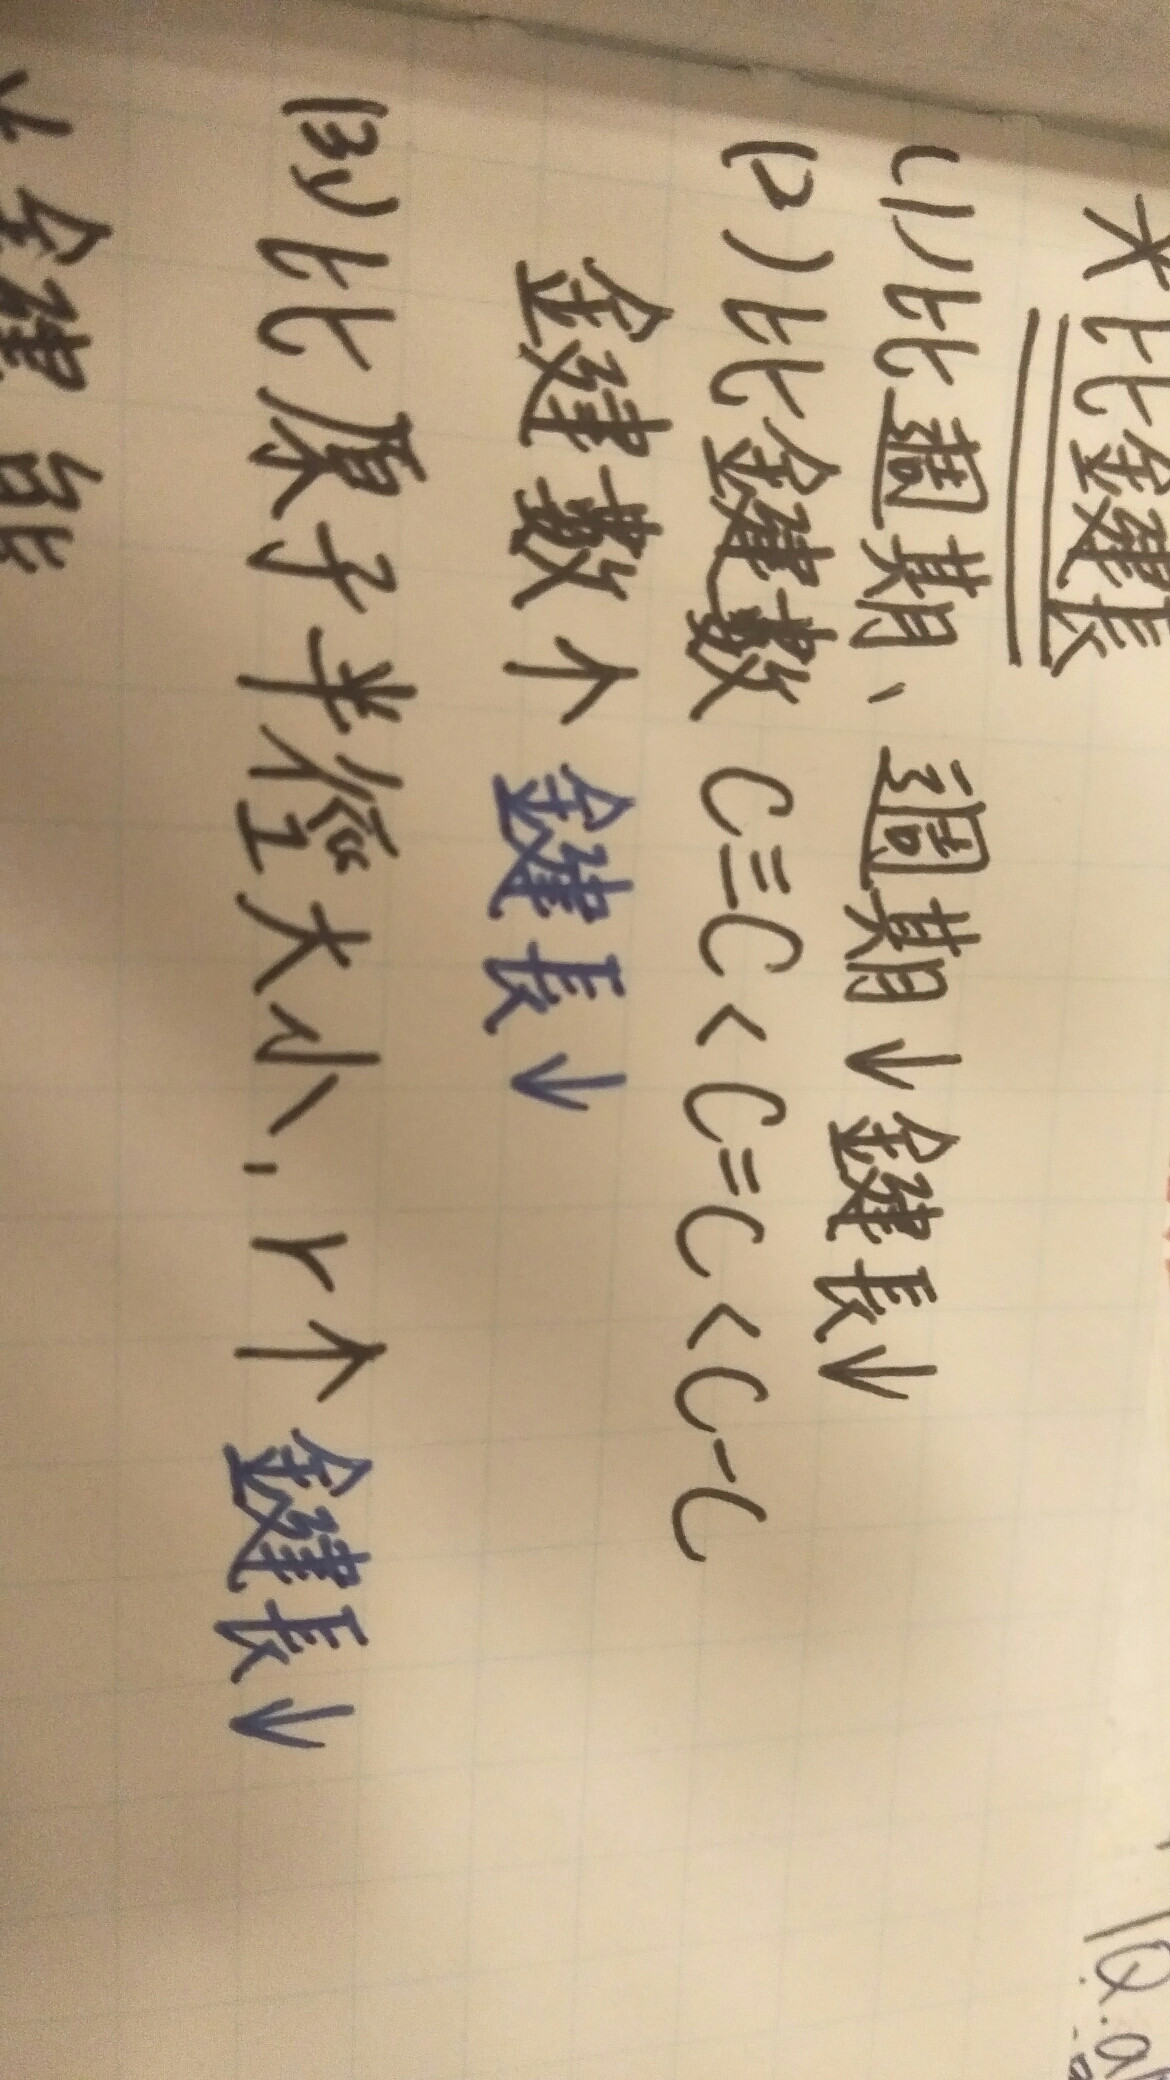 *比鍵長
(1)比週期、週期↓鍵長↓
(2)比鍵數 C≡C<C=C<C-C
鍵數↑鍵長↓
(3)比原子半徑大小,r↑鍵長↓
*鍵能
Q.